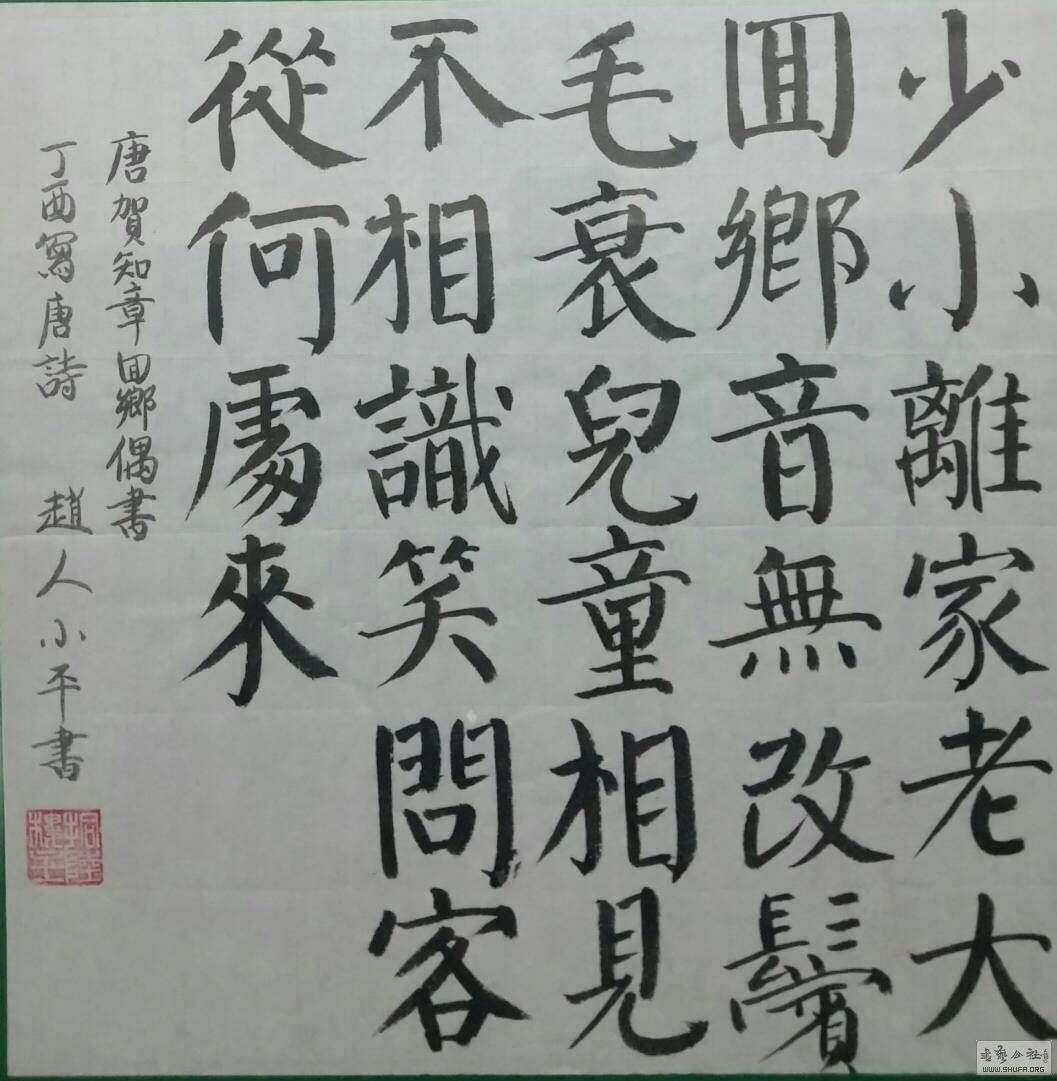 少小離家老大
回鄉音無改鬢
毛衰兒童相見
不相識笑問客
從何處來
唐賀知章回鄉偶書
丁酉寫唐詩 趙人小平書
书艺公社
WWW.SHUFA.ORG